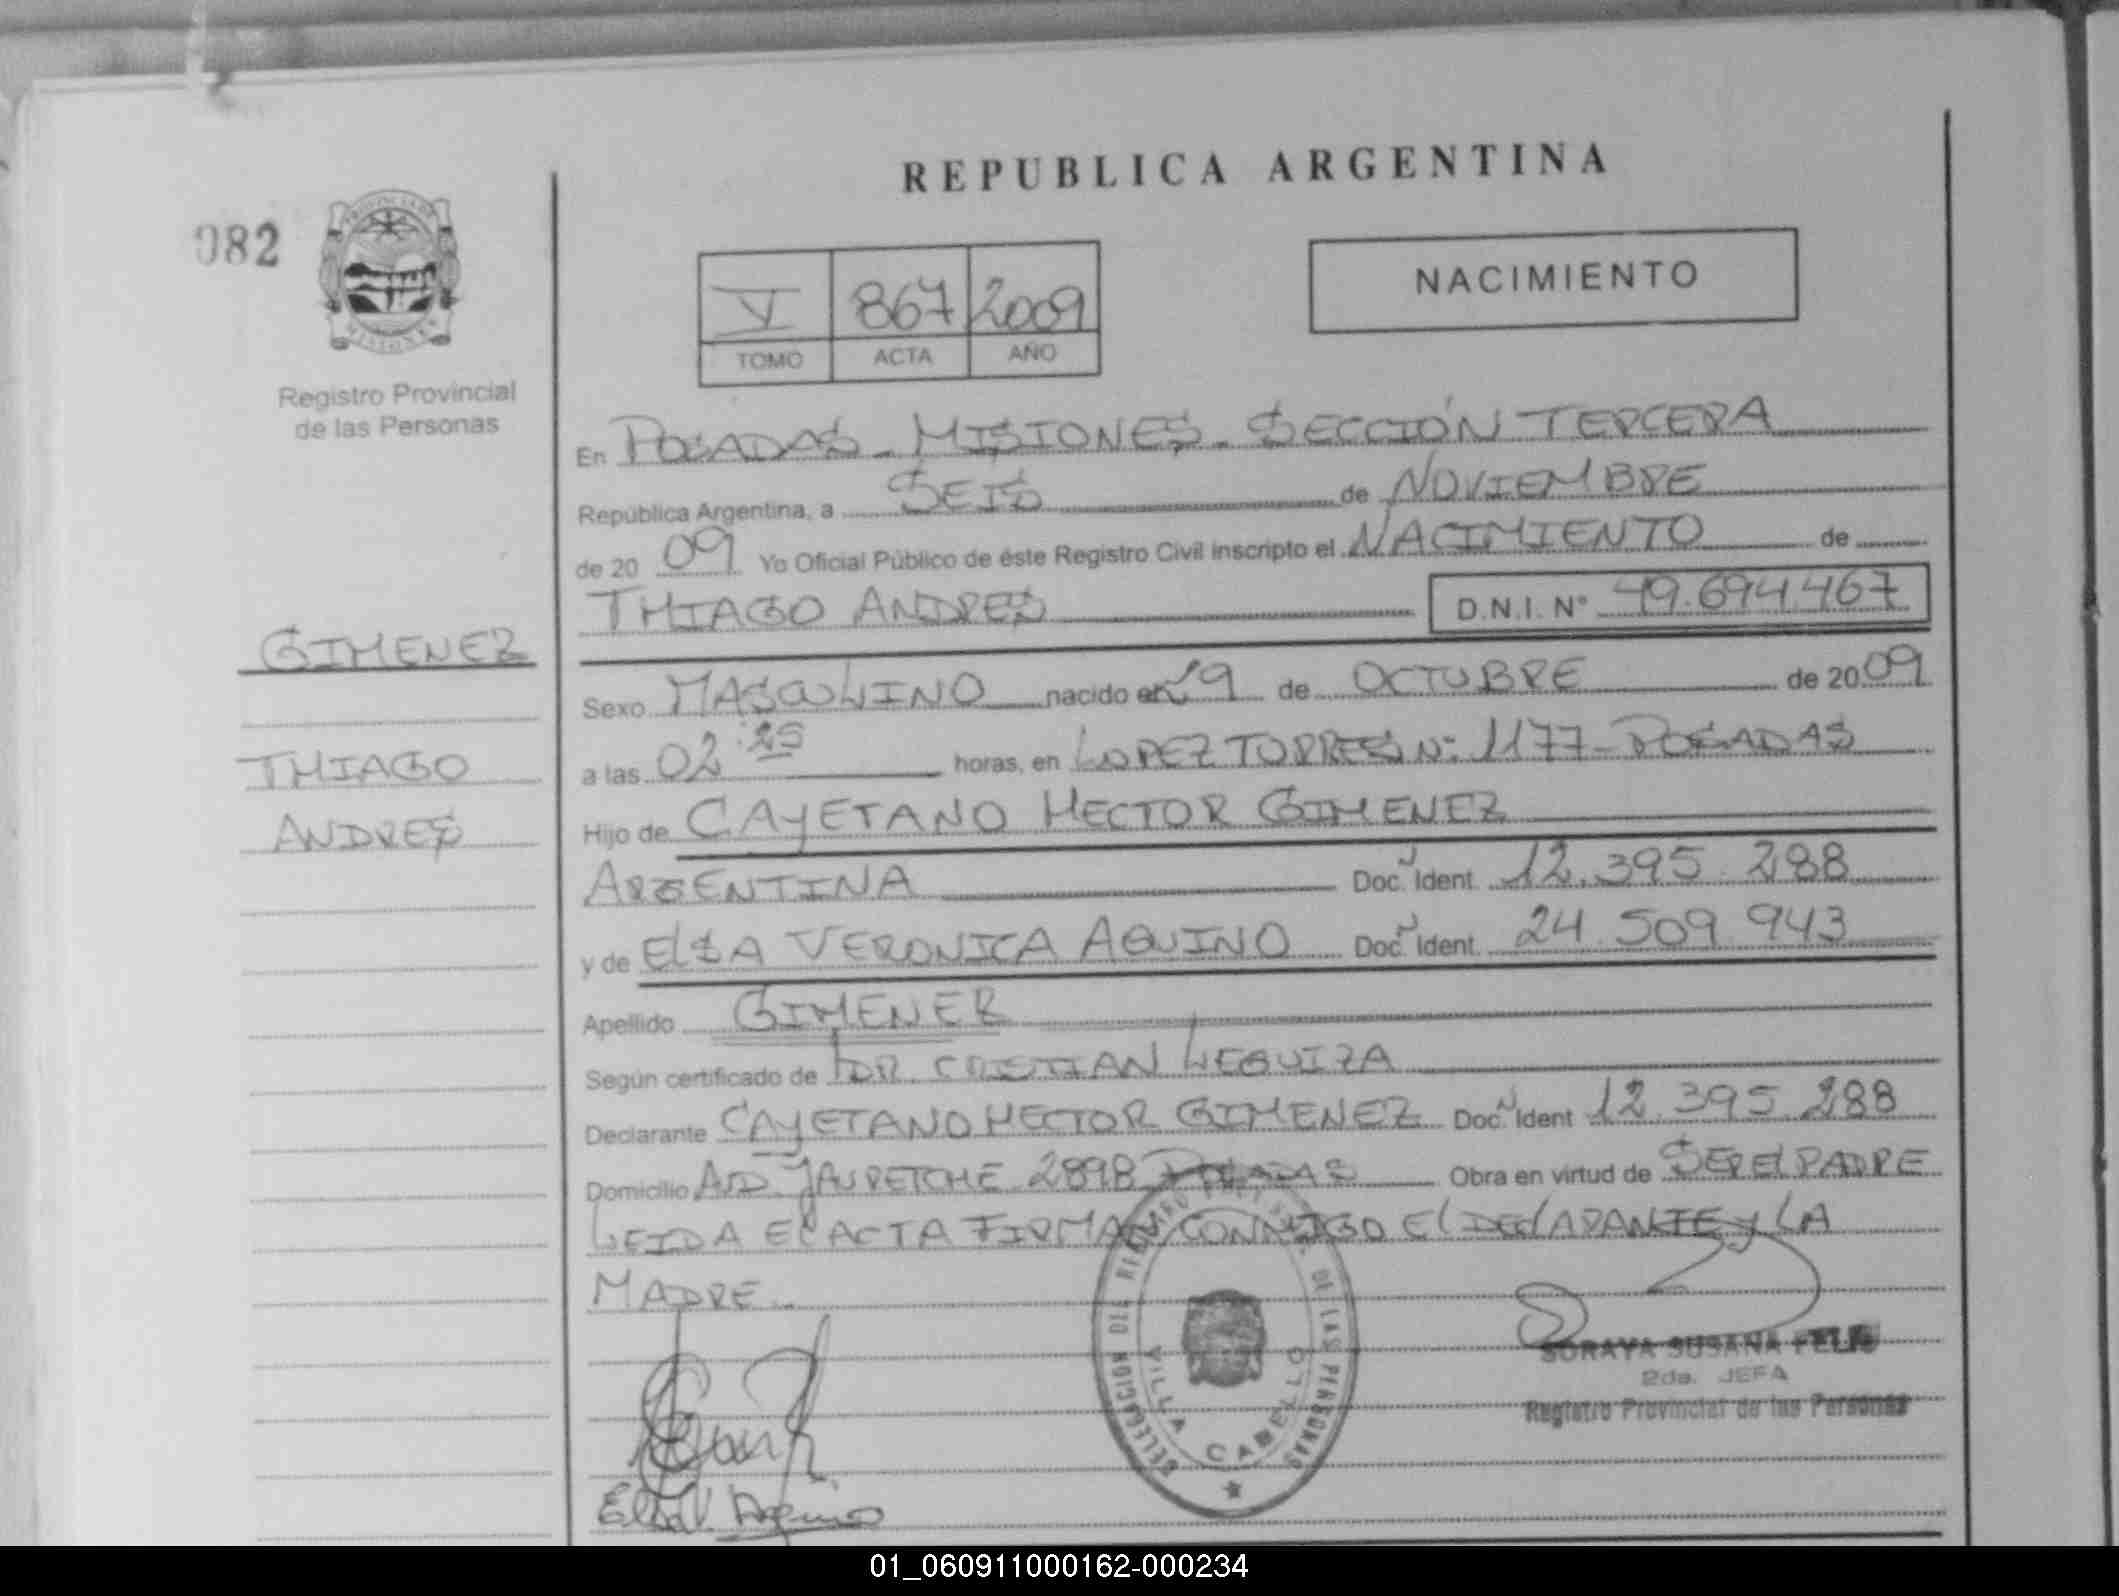 REPUBLICA ARGENTINA
082
PROVINCIA DE
MISIONES
Registro Provincial
de las Personas
V 867 2009
TOMO ACTA AÑO
NACIMIENTO
En POSADAS - MISIONES - SECCIÓN TERCERA
República Argentina, a SEIS de NOVIEMBRE
de 20 09 Yo Oficial Público de éste Registro Civil inscripto el NACIMIENTO de
THIAGO ANDRES D.N.I. N° 49.694.467
GIMENEZ
THIAGO
ANDRES
Sexo MASCULINO nacido el 29 de OCTUBRE de 20 09
a las 02:25 horas, en LOPEZ TORRES N: 1177 - POSADAS
Hijo de CAYETANO HECTOR GIMENEZ
ARGENTINA Doc. Ident. 12.395.288
y de ELSA VERONICA AQUINO Doc. Ident. 24.509.943
Apellido GIMENEZ
Según certificado de DR. CRISTIAN LEGUIZA
Declarante CAYETANO HECTOR GIMENEZ Doc. Ident 12.395.288
Domicilio AVD. JAURETCHE 2898 POSADAS Obra en virtud de SER EL PADRE
LEIDA EL ACTA FIRMAN CONMIGO EL DECLARANTE Y LA
MADRE.
DELEGACION DEL REGISTRO DE LAS PERSONAS
VILLA CABELLO
SORAYA SUSANA
2da. JEFA
Registro Provincial de las Personas
Elsa V. Aquino
01_060911000162-000234